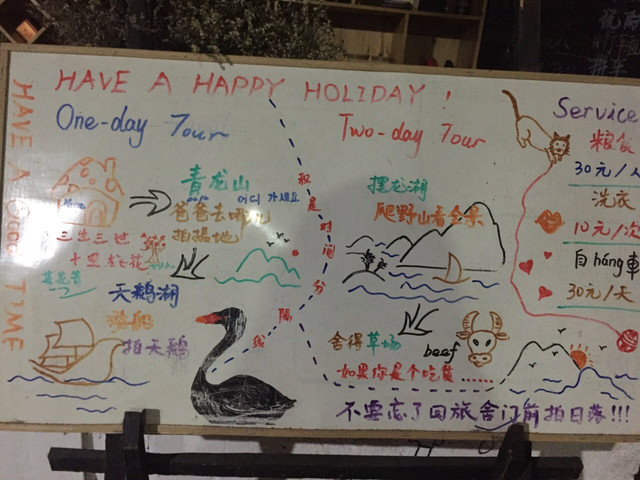 HAVE A HAPPY HOLIDAY !
HAVE A Good TIME
One-day Tour
青龙山
爸爸去哪儿
어디 가세요
拍摄地
Home
三生三世
十里桃花
天鹅湖
游船
拍天鹅
我是时间分隔线
Two-day Tour
摆龙湖
爬野山看全景
舍得草场
beef
如果你是个吃货......
不要忘了回旅舍门前拍日落!!!
Service
粮食
30元/人
洗衣
10元/次
自háng車
30元/天